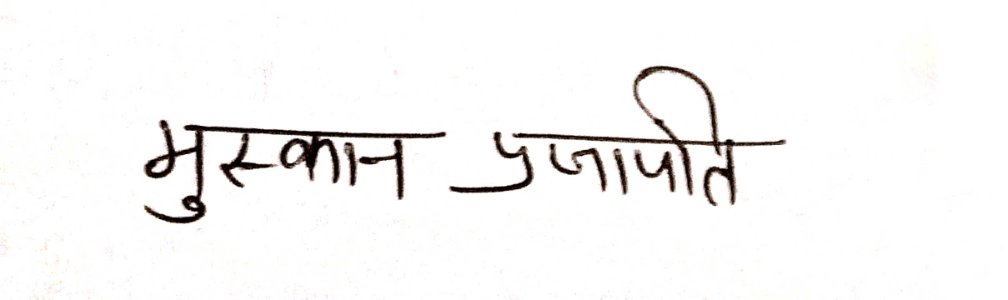 मुस्कान प्रजापति